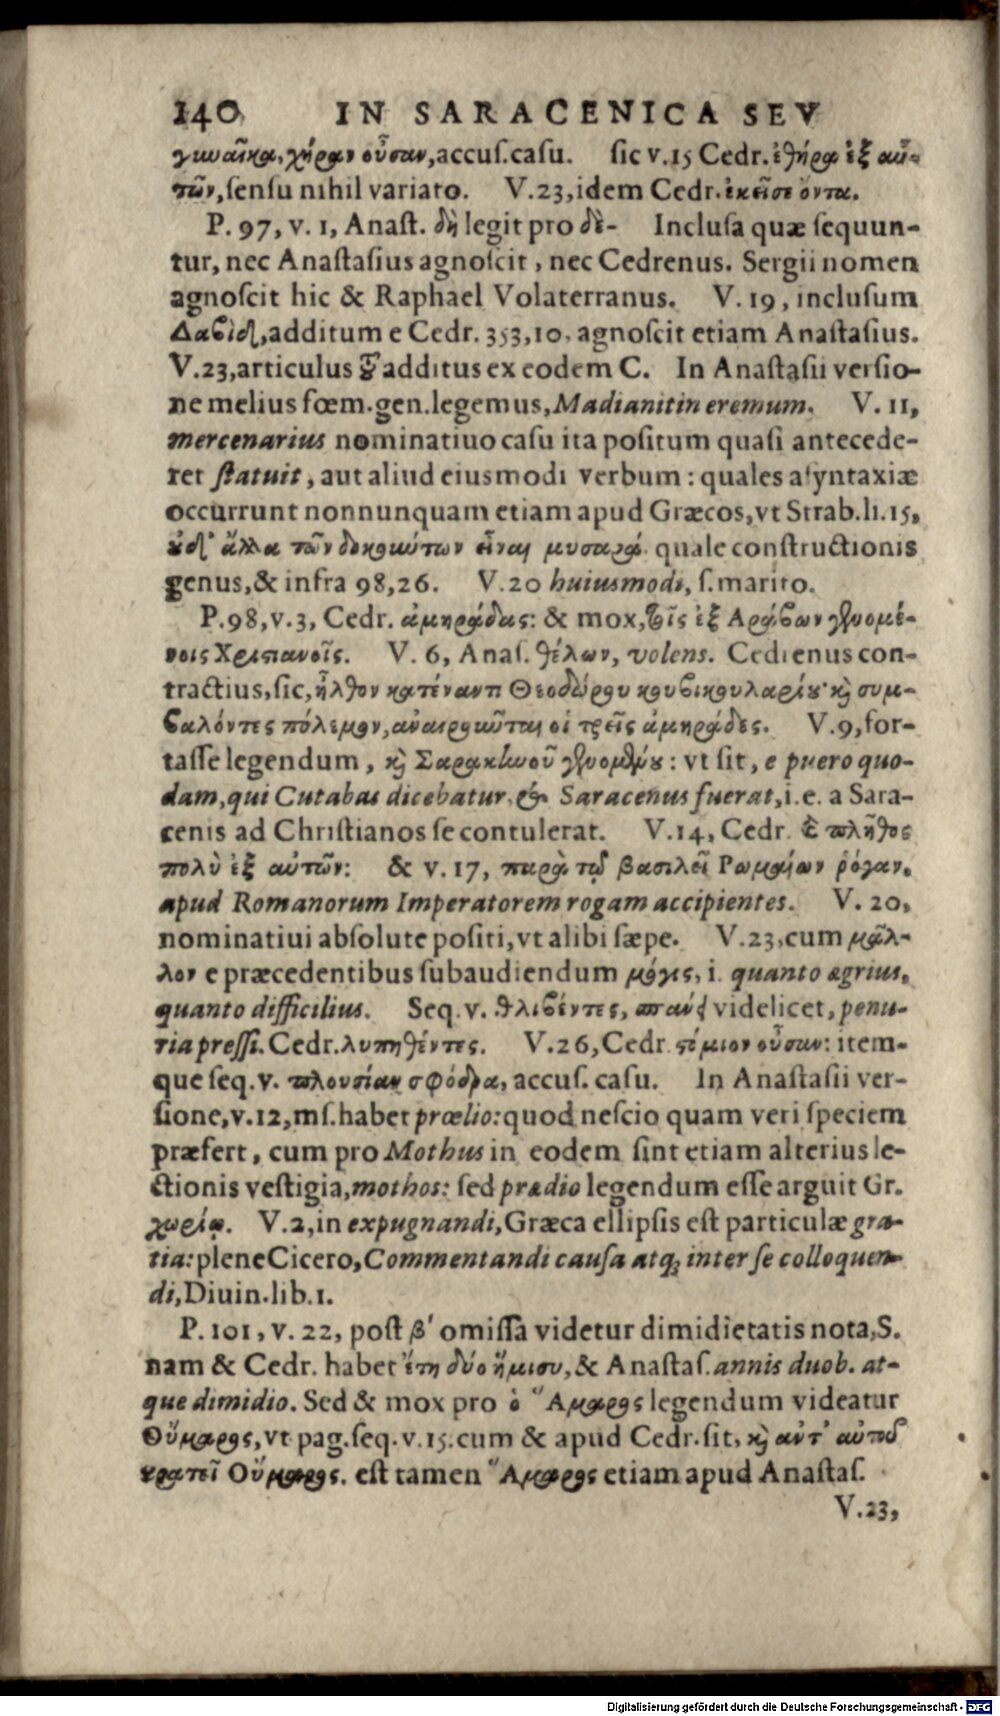 140 IN SARACENICA SEV
γυναῖκα, χήραν οὖσαν, accuſ. caſu. ſic v. 15 Cedr. ἐθήρα ἐξ αὐ-
τῶν, ſenſu nihil variato. V. 23, idem Cedr. ἐκεῖσε ὄντα.
P. 97, v. 1, Anaſt. δὴ legit pro δὲ- Incluſa quæ ſequun-
tur, nec Anaſtaſius agnoſcit, nec Cedrenus. Sergii nomen
agnoſcit hic & Raphael Volaterranus. V. 19, incluſum
Δαβὶδ, additum e Cedr. 353, 10, agnoſcit etiam Anaſtaſius.
V. 23, articulus additus ex eodem C. In Anaſtaſii verſio-
ne melius fœm. gen. legemus, Madianitin eremum. V. 11,
mercenarius nominatiuo caſu ita poſitum quaſi antecede-
ret ſtatuit, aut aliud eiuſmodi verbum: quales aſyntaxiæ
occurrunt nonnunquam etiam apud Græcos, vt Strab. li. 15,
καὶ ἄλλα τῶν δοκούντων εἶναι μυσαρά. quale conſtructionis
genus, & infra 98, 26. V. 20 huiuſmodi, ſ. marito.
P. 98, v. 3, Cedr. ἀμηράδας: & mox, τοῖς ἐξ Αράβων γενομέ-
νοις Χριστιανοῖς. V. 6, Anaſ. θέλων, volens. Cedrenus con-
tractius, ſic, ἦλθον κατέναντι Θεοδώρου κουβικουλαρίου· καὶ συμ-
βαλόντες πόλεμον, ἀναιροῦνται οἱ τρεῖς ἀμηράδες. V. 9, for-
taſſe legendum, καὶ Σαρακηνοῦ γενομένου: vt ſit, e puero quo-
dam, qui Cutabas dicebatur, & Saracenus fuerat, i. e. a Sara-
cenis ad Chriſtianos ſe contulerat. V. 14, Cedr. πλῆθος
πολὺ ἐξ αὐτῶν: & v. 17, παρὰ τῷ βασιλεῖ Ρωμαίων ῥόγαν,
apud Romanorum Imperatorem rogam accipientes. V. 20,
nominatiui abſolute poſiti, vt alibi ſæpe. V. 23, cum μᾶλ-
λον e præcedentibus ſubaudiendum μόγις, i. quanto ægrius,
quanto difficilius. Seq. v. θλιβέντες, videlicet, penu-
ria preſſi. Cedr. λυπηθέντες. V. 26, Cedr. οὖσαν: item-
que ſeq. v. πλουσίαν σφόδρα, accuſ. caſu. In Anaſtaſii ver-
ſione, v. 12, mſ. habet prœlio: quod neſcio quam veri ſpeciem
præfert, cum pro Mothus in eodem ſint etiam alterius le-
ctionis veſtigia, mothos: ſed prædio legendum eſſe arguit Gr.
χωρίῳ. V. 2, in expugnandi, Græca ellipſis eſt particulæ gra-
tia: plene Cicero, Commentandi cauſa atq; inter ſe colloquen-
di, Diuin. lib. 1.
P. 101, v. 22, poſt β' omiſſa videtur dimidietatis nota, S.
nam & Cedr. habet ἔτη δύο ἥμισυ, & Anaſtaſ. annis duob. at-
que dimidio. Sed & mox pro ὁ Ἄμαρος legendum videatur
Οὔμαρος, vt pag. ſeq. v. 15. cum & apud Cedr. ſit, καὶ ἀντ' αὐτοῦ
κρατεῖ Οὔμαρος. eſt tamen Ἄμαρος etiam apud Anaſtaſ.
V. 23,
Digitalisierung gefördert durch die Deutsche Forschungsgemeinschaft - DFG